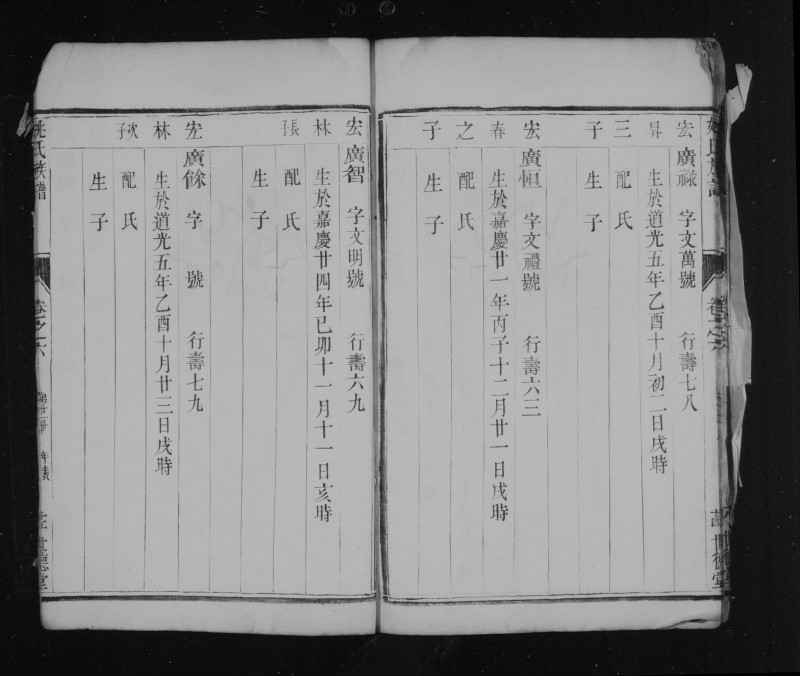 宏 廣祿 字文萬號 行壽七八
昇 生於道光五年乙酉十月初二日戌時
三 配 氏
子 生 子
宏 廣恒 字文禮號 行壽六三
春 生於嘉慶廿一年丙子十二月廿一日戌時
之 配 氏
子 生 子
宏 廣智 字文明號 行壽六九
林 生於嘉慶廿四年己卯十一月十一日亥時
長 配 氏
子 生 子
宏 廣餘 字 號 行壽七九
林 生於道光五年乙酉十月廿三日戌時
次子 配 氏
生 子
姚氏族譜 卷之六 年表 世德堂